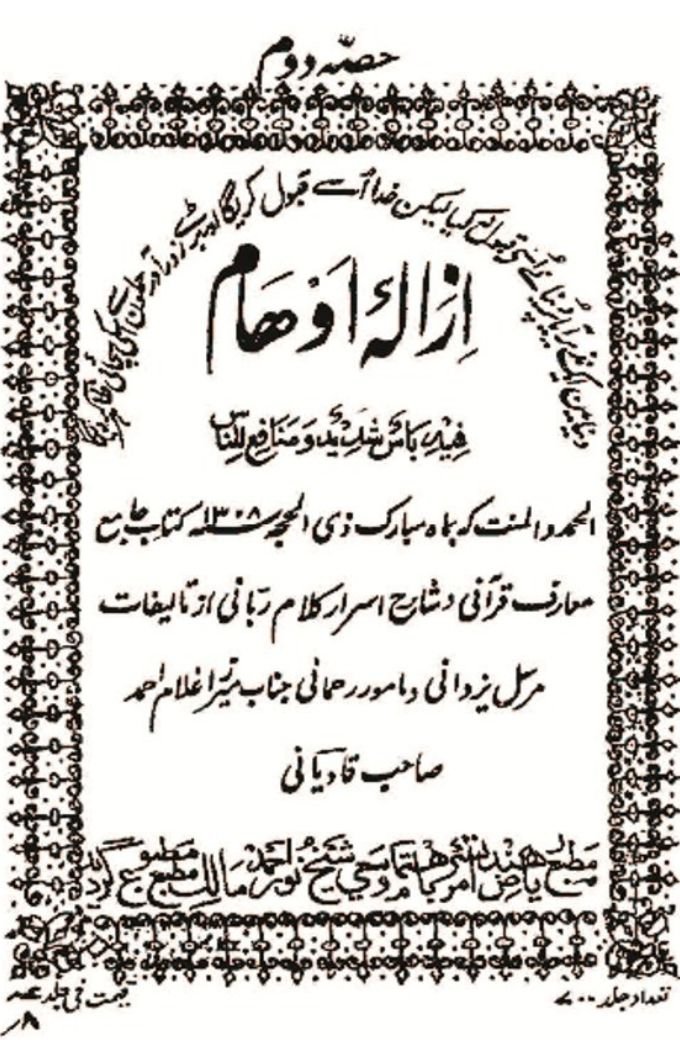 حصہ دوم
دنیا میں ایک نذیر آیا پر دنیا نے اُسے قبول نہ کیا لیکن خدا اُسے قبول کریگا اور بڑے زور آور حملوں سے اسکی سچائی ظاہر کر دیگا
اِزَالۂ اَوْهَام
فِیْہِ بَاْسٌ شَدِیْدٌ وَ مَنَافِعُ لِلنَّاسِ
الحمد و المنت کہ بماہ مبارک ذی الحجہ ۱۳۰۸ کتاب جامع
معارف قرآنی و شارح اسرار کلام ربّانی از تالیفات
مرسل یزدانی و مامور رحمانی جناب میرزا غلام احمد
صاحب قادیانی
مطبع ریاض ہند امرتسر باہتمام وسعی شیخ نور احمد مالک مطبع مطبوع گردید
تعداد جلد ۷۰۰
قیمت فی جلد